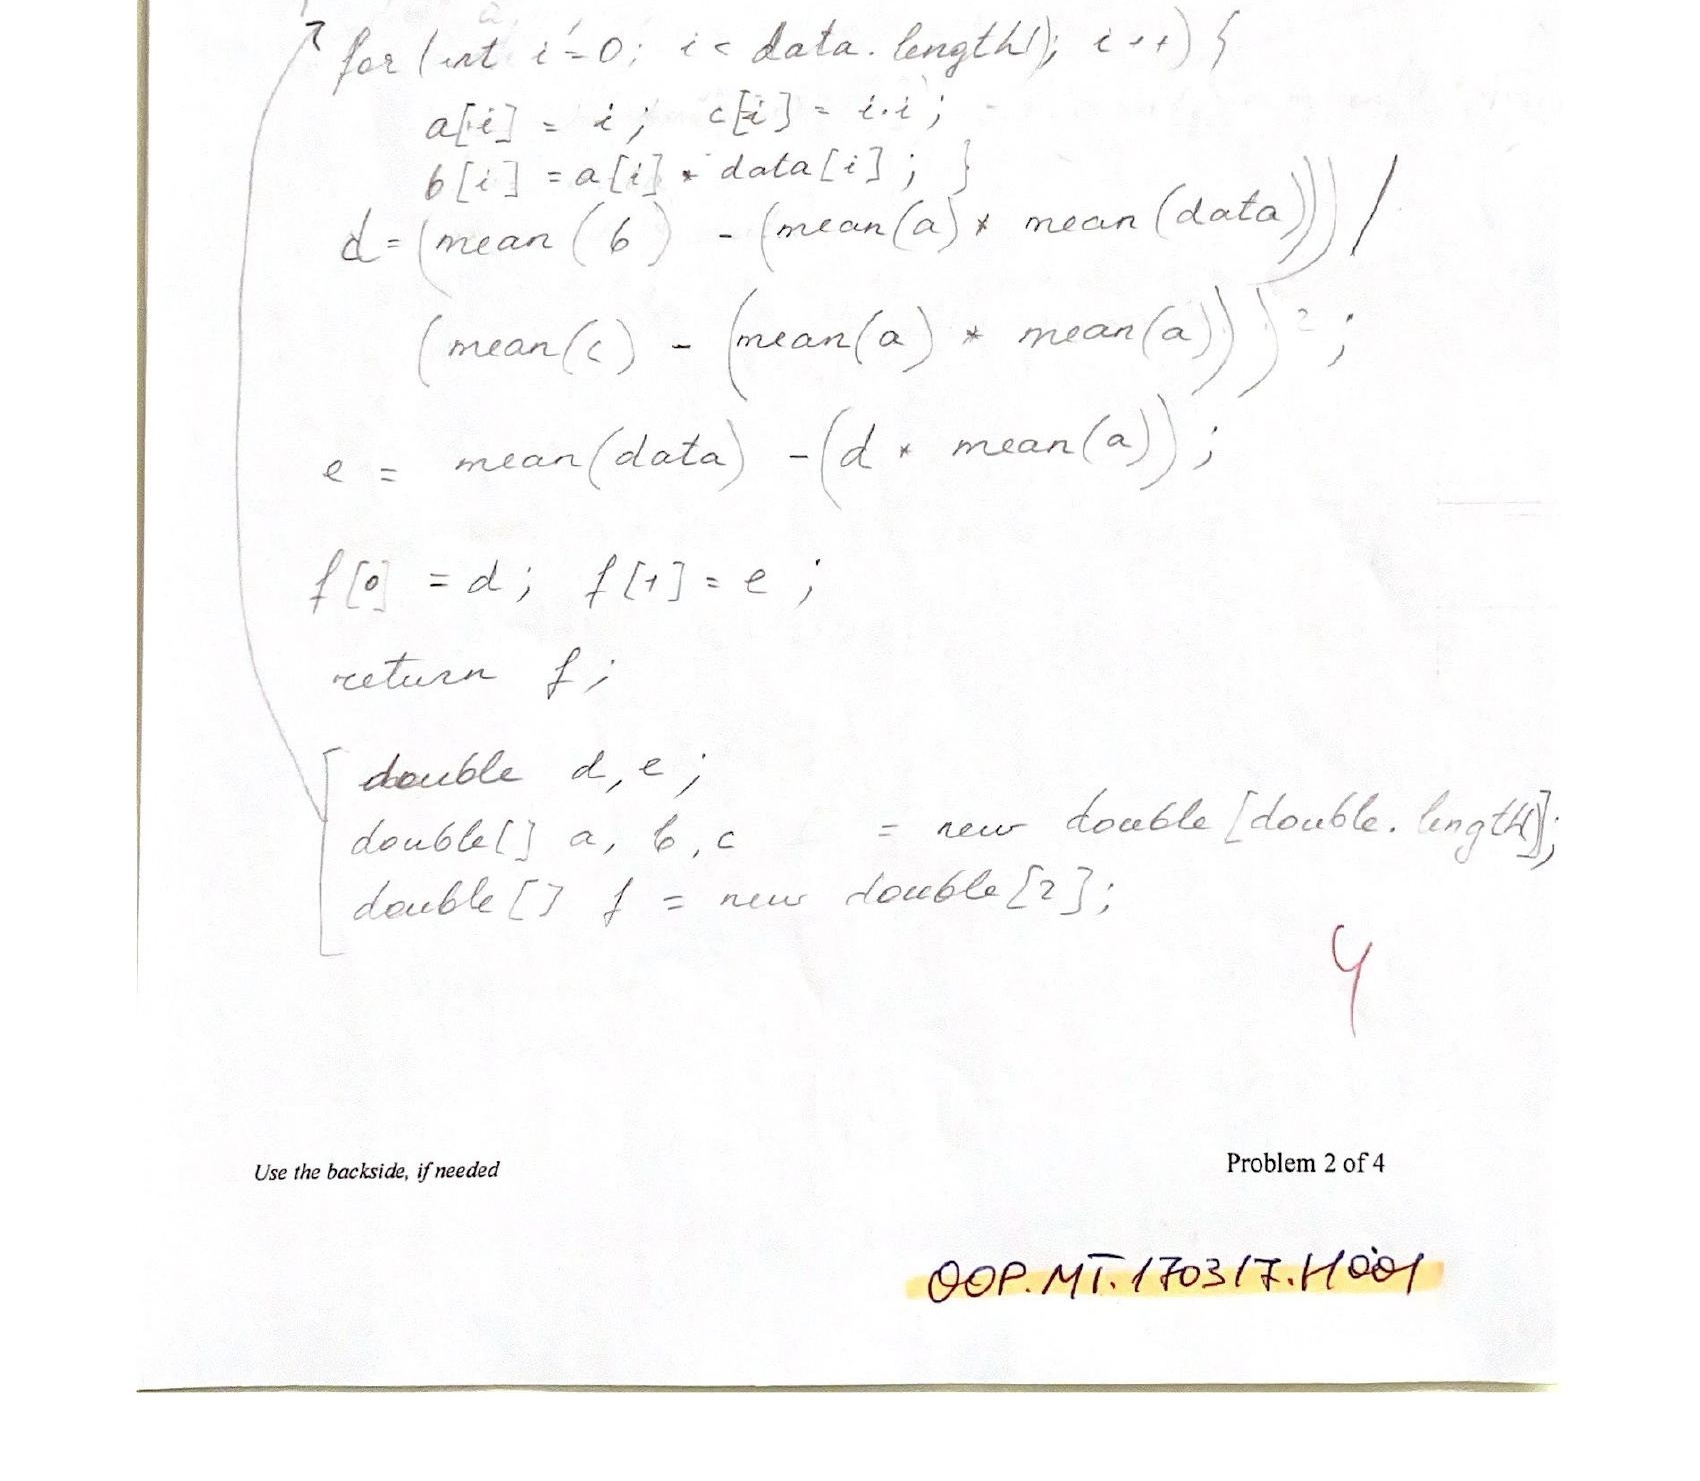 for (int i=0; i < data.length(); i++) {
a[i] = i; c[i] = i·i;
b[i] = a[i] * data[i]; }
d = (mean(b) - (mean(a) * mean(data))) /
(mean(c) - (mean(a) * mean(a)));
e = mean(data) - (d * mean(a));
f[0] = d; f[1] = e;
return f;
double d, e;
double[] a, b, c = new double[double.length()];
double[] f = new double[2];
4
Use the backside, if needed
Problem 2 of 4
OOP.MT.170317.H001